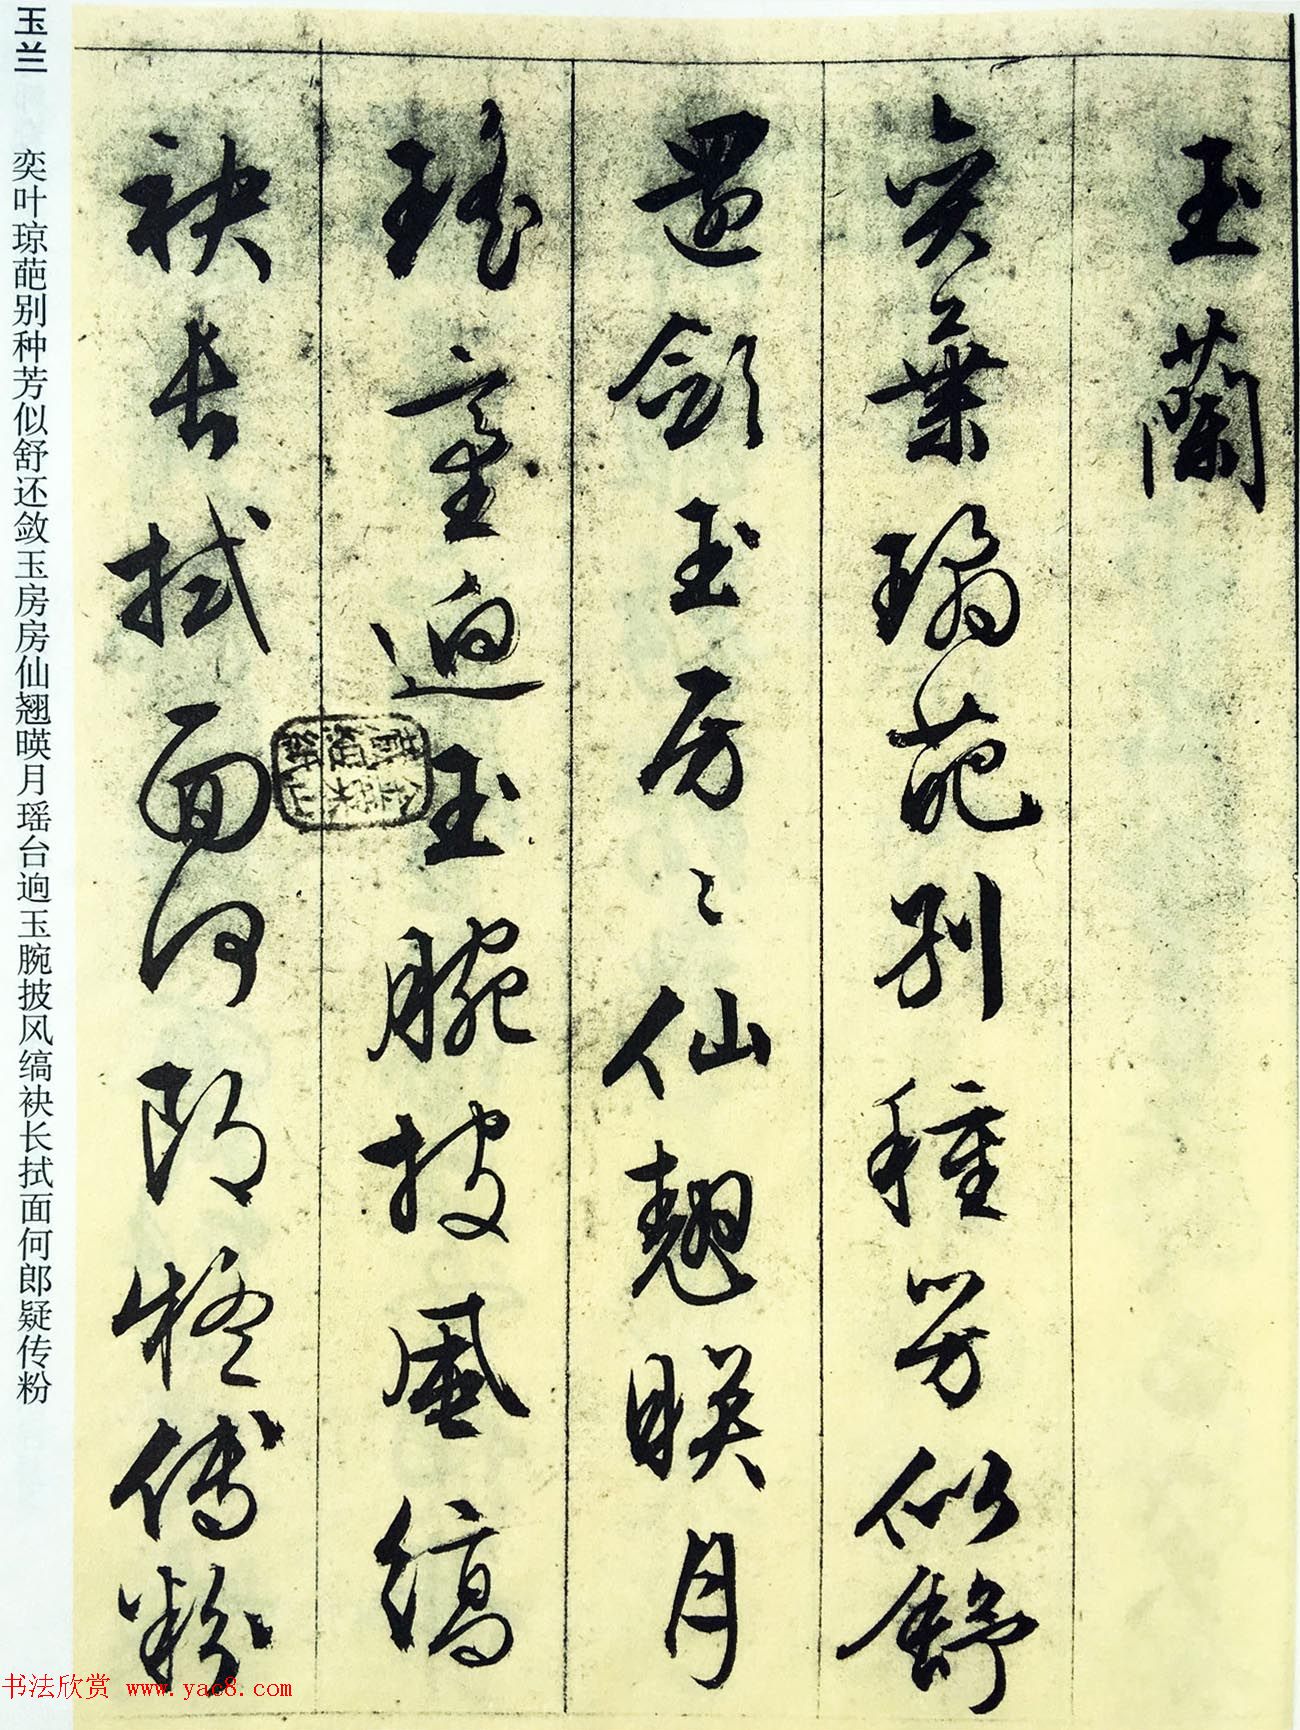 玉蘭
奕葉瓊葩別種芳似舒
還斂玉房〻仙翹暎月
瑤臺逈玉腕披風縞
袂長拭面何郎疑傅粉
玉兰 奕叶琼葩别种芳似舒还敛玉房房仙翘暎月瑶台逈玉腕披风缟袂长拭面何郎疑传粉
书法欣赏 www.yac8.com